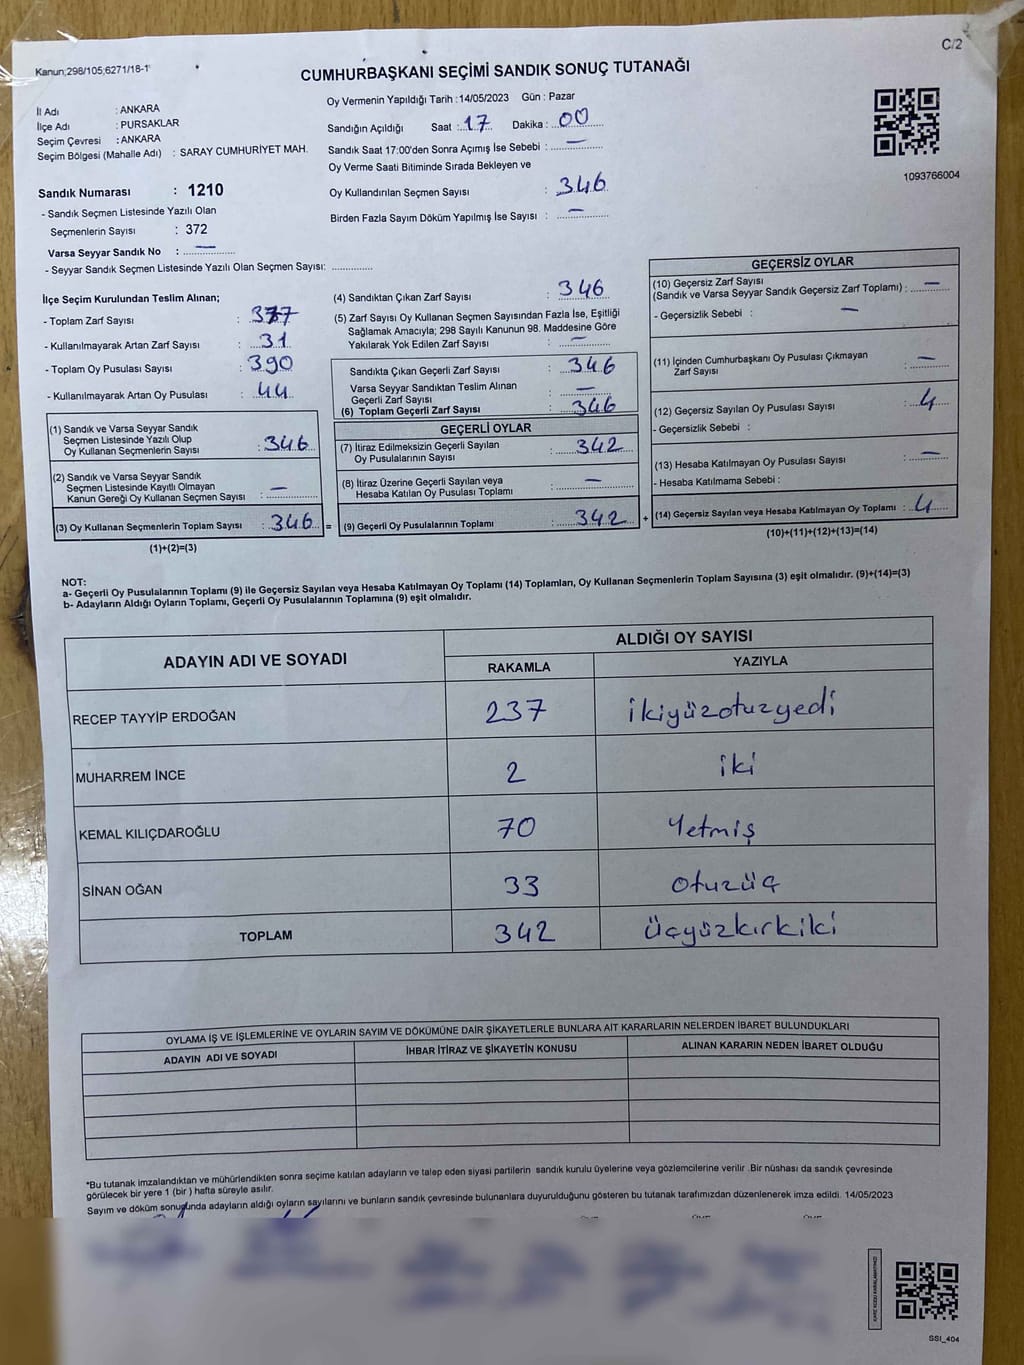 C/2
Kanun;298/105;6271/18-1
CUMHURBAŞKANI SEÇİMİ SANDIK SONUÇ TUTANAĞI
İl Adı : ANKARA
İlçe Adı : PURSAKLAR
Seçim Çevresi : ANKARA
Seçim Bölgesi (Mahalle Adı) : SARAY CUMHURİYET MAH.
Oy Vermenin Yapıldığı Tarih :14/05/2023 Gün : Pazar
Sandığın Açıldığı Saat :..17.. Dakika :...00......
Sandık Saat 17:00'den Sonra Açımış İse Sebebi : —
Oy Verme Saati Bitiminde Sırada Bekleyen ve
Oy Kullandırılan Seçmen Sayısı : 346
Birden Fazla Sayım Döküm Yapılmış İse Sayısı : —
1093766004
Sandık Numarası : 1210
- Sandık Seçmen Listesinde Yazılı Olan
Seçmenlerin Sayısı : 372
Varsa Seyyar Sandık No : —
- Seyyar Sandık Seçmen Listesinde Yazılı Olan Seçmen Sayısı: ............
İlçe Seçim Kurulundan Teslim Alınan;
- Toplam Zarf Sayısı : 377
- Kullanılmayarak Artan Zarf Sayısı : 31
- Toplam Oy Pusulası Sayısı : 390
- Kullanılmayarak Artan Oy Pusulası : 44
(1) Sandık ve Varsa Seyyar Sandık
Seçmen Listesinde Yazılı Olup
Oy Kullanan Seçmenlerin Sayısı : 346
(2) Sandık ve Varsa Seyyar Sandık
Seçmen Listesinde Kayıtlı Olmayan
Kanun Gereği Oy Kullanan Seçmen Sayısı : —
(3) Oy Kullanan Seçmenlerin Toplam Sayısı : 346 =
(1)+(2)=(3)
(4) Sandıktan Çıkan Zarf Sayısı : 346
(5) Zarf Sayısı Oy Kullanan Seçmen Sayısından Fazla İse, Eşitliği
Sağlamak Amacıyla; 298 Sayılı Kanunun 98. Maddesine Göre
Yakılarak Yok Edilen Zarf Sayısı : —
Sandıkta Çıkan Geçerli Zarf Sayısı : 346
Varsa Seyyar Sandıktan Teslim Alınan
Geçerli Zarf Sayısı : —
(6) Toplam Geçerli Zarf Sayısı : 346
GEÇERLİ OYLAR
(7) İtiraz Edilmeksizin Geçerli Sayılan
Oy Pusulalarının Sayısı : 342
(8) İtiraz Üzerine Geçerli Sayılan veya
Hesaba Katılan Oy Pusulası Toplamı : —
(9) Geçerli Oy Pusulalarının Toplamı : 342 +
GEÇERSİZ OYLAR
(10) Geçersiz Zarf Sayısı
(Sandık ve Varsa Seyyar Sandık Geçersiz Zarf Toplamı) : —
- Geçersizlik Sebebi : —
(11) İçinden Cumhurbaşkanı Oy Pusulası Çıkmayan
Zarf Sayısı : —
(12) Geçersiz Sayılan Oy Pusulası Sayısı : 4
- Geçersizlik Sebebi :
(13) Hesaba Katılmayan Oy Pusulası Sayısı : —
- Hesaba Katılmama Sebebi :
(14) Geçersiz Sayılan veya Hesaba Katılmayan Oy Toplamı : 4
(10)+(11)+(12)+(13)=(14)
NOT:
a- Geçerli Oy Pusulalarının Toplamı (9) ile Geçersiz Sayılan veya Hesaba Katılmayan Oy Toplamı (14) Toplamları, Oy Kullanan Seçmenlerin Toplam Sayısına (3) eşit olmalıdır. (9)+(14)=(3)
b- Adayların Aldığı Oyların Toplamı, Geçerli Oy Pusulalarının Toplamına (9) eşit olmalıdır.
ADAYIN ADI VE SOYADI ALDIĞI OY SAYISI
RAKAMLA YAZIYLA
RECEP TAYYİP ERDOĞAN 237 ikiyüzotuzyedi
MUHARREM İNCE 2 iki
KEMAL KILIÇDAROĞLU 70 Yetmiş
SİNAN OĞAN 33 otuzüç
TOPLAM 342 üçyüzkırkiki
OYLAMA İŞ VE İŞLEMLERİNE VE OYLARIN SAYIM VE DÖKÜMÜNE DAİR ŞİKAYETLERLE BUNLARA AİT KARARLARIN NELERDEN İBARET BULUNDUKLARI
ADAYIN ADI VE SOYADI İHBAR İTİRAZ VE ŞİKAYETİN KONUSU ALINAN KARARIN NEDEN İBARET OLDUĞU
*Bu tutanak imzalandıktan ve mühürlendikten sonra seçime katılan adayların ve talep eden siyasi partilerin sandık kurulu üyelerine veya gözlemcilerine verilir .Bir nüshası da sandık çevresinde
görülecek bir yere 1 (bir ) hafta süreyle asılır.
Sayım ve döküm sonuçunda adayların aldığı oyların sayılarını ve bunların sandık çevresinde bulunanlara duyurulduğunu gösteren bu tutanak tarafımızdan düzenlenerek imza edildi. 14/05/2023
SSI_404